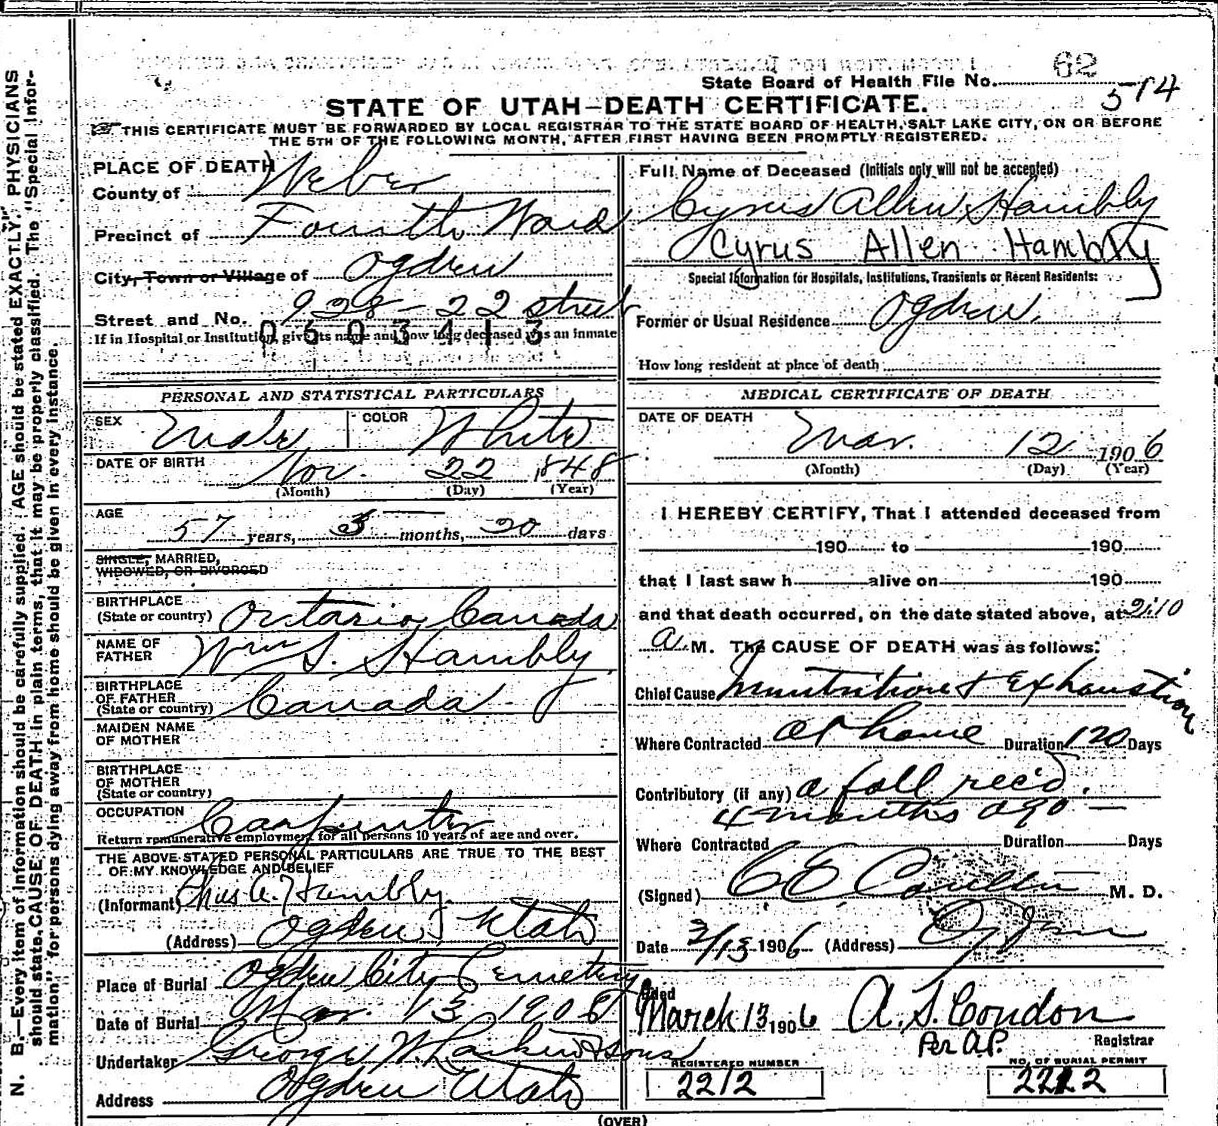 N. B.—Every item of Information should be carefully supplied. AGE should be stated EXACTLY. PHYSICIANS
should state CAUSE OF DEATH in plain terms, that it may be properly classified. The "Special Infor-
mation," for persons dying away from home should be given in every instance.
State Board of Health File No. 62
514
STATE OF UTAH—DEATH CERTIFICATE.
THIS CERTIFICATE MUST BE FORWARDED BY LOCAL REGISTRAR TO THE STATE BOARD OF HEALTH, SALT LAKE CITY, ON OR BEFORE
THE 5TH OF THE FOLLOWING MONTH, AFTER FIRST HAVING BEEN PROMPTLY REGISTERED.
PLACE OF DEATH
County of Weber
Precinct of Fourth Ward
City, Town or Village of Ogden
Street and No. 928 - 22 street
0603413
If in Hospital or Institution, give its name and how long deceased was an inmate
PERSONAL AND STATISTICAL PARTICULARS
SEX Male COLOR White
DATE OF BIRTH Nov. 22 1848
(Month) (Day) (Year)
AGE
57 years, 3 months, 20 days
SINGLE, MARRIED,
WIDOWED, OR DIVORCED
BIRTHPLACE
(State or country) Ontario, Canada
NAME OF
FATHER Wm S. Hambly
BIRTHPLACE
OF FATHER
(State or country) Canada
MAIDEN NAME
OF MOTHER
BIRTHPLACE
OF MOTHER
(State or country)
OCCUPATION Carpenter
Return remunerative employment for all persons 10 years of age and over.
THE ABOVE STATED PERSONAL PARTICULARS ARE TRUE TO THE BEST
OF MY KNOWLEDGE AND BELIEF
(Informant) Hambly
(Address) Ogden, Utah
Place of Burial Ogden City Cemetery
Date of Burial Mar. 13 1906
Undertaker George W. Larkin & Sons
Address Ogden Utah
Full Name of Deceased (Initials only will not be accepted)
Cyrus Allen Hambly
Cyrus Allen Hambly
Special Information for Hospitals, Institutions, Transients or Recent Residents:
Former or Usual Residence Ogden.
How long resident at place of death
MEDICAL CERTIFICATE OF DEATH
DATE OF DEATH
Mar. 12 1906
(Month) (Day) (Year)
I HEREBY CERTIFY, That I attended deceased from
190 to 190
that I last saw h alive on 190
and that death occurred, on the date stated above, at 2:10
a. M. The CAUSE OF DEATH was as follows:
Chief Cause Innutrition & Exhaustion
Where Contracted at home Duration 120 Days
Contributory (if any) a fall rec'd.
4 months ago —
Where Contracted Duration Days
(Signed) C E Coulter M. D.
Date 3/13 1906 (Address) Ogden
Filed
March 13 1906 A. S. Condon
Per A.P. Registrar
REGISTERED NUMBER NO. OF BURIAL PERMIT
2212 2212
(OVER)